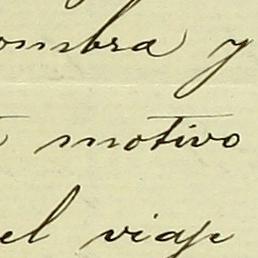 ombra y
motivo
el viaje